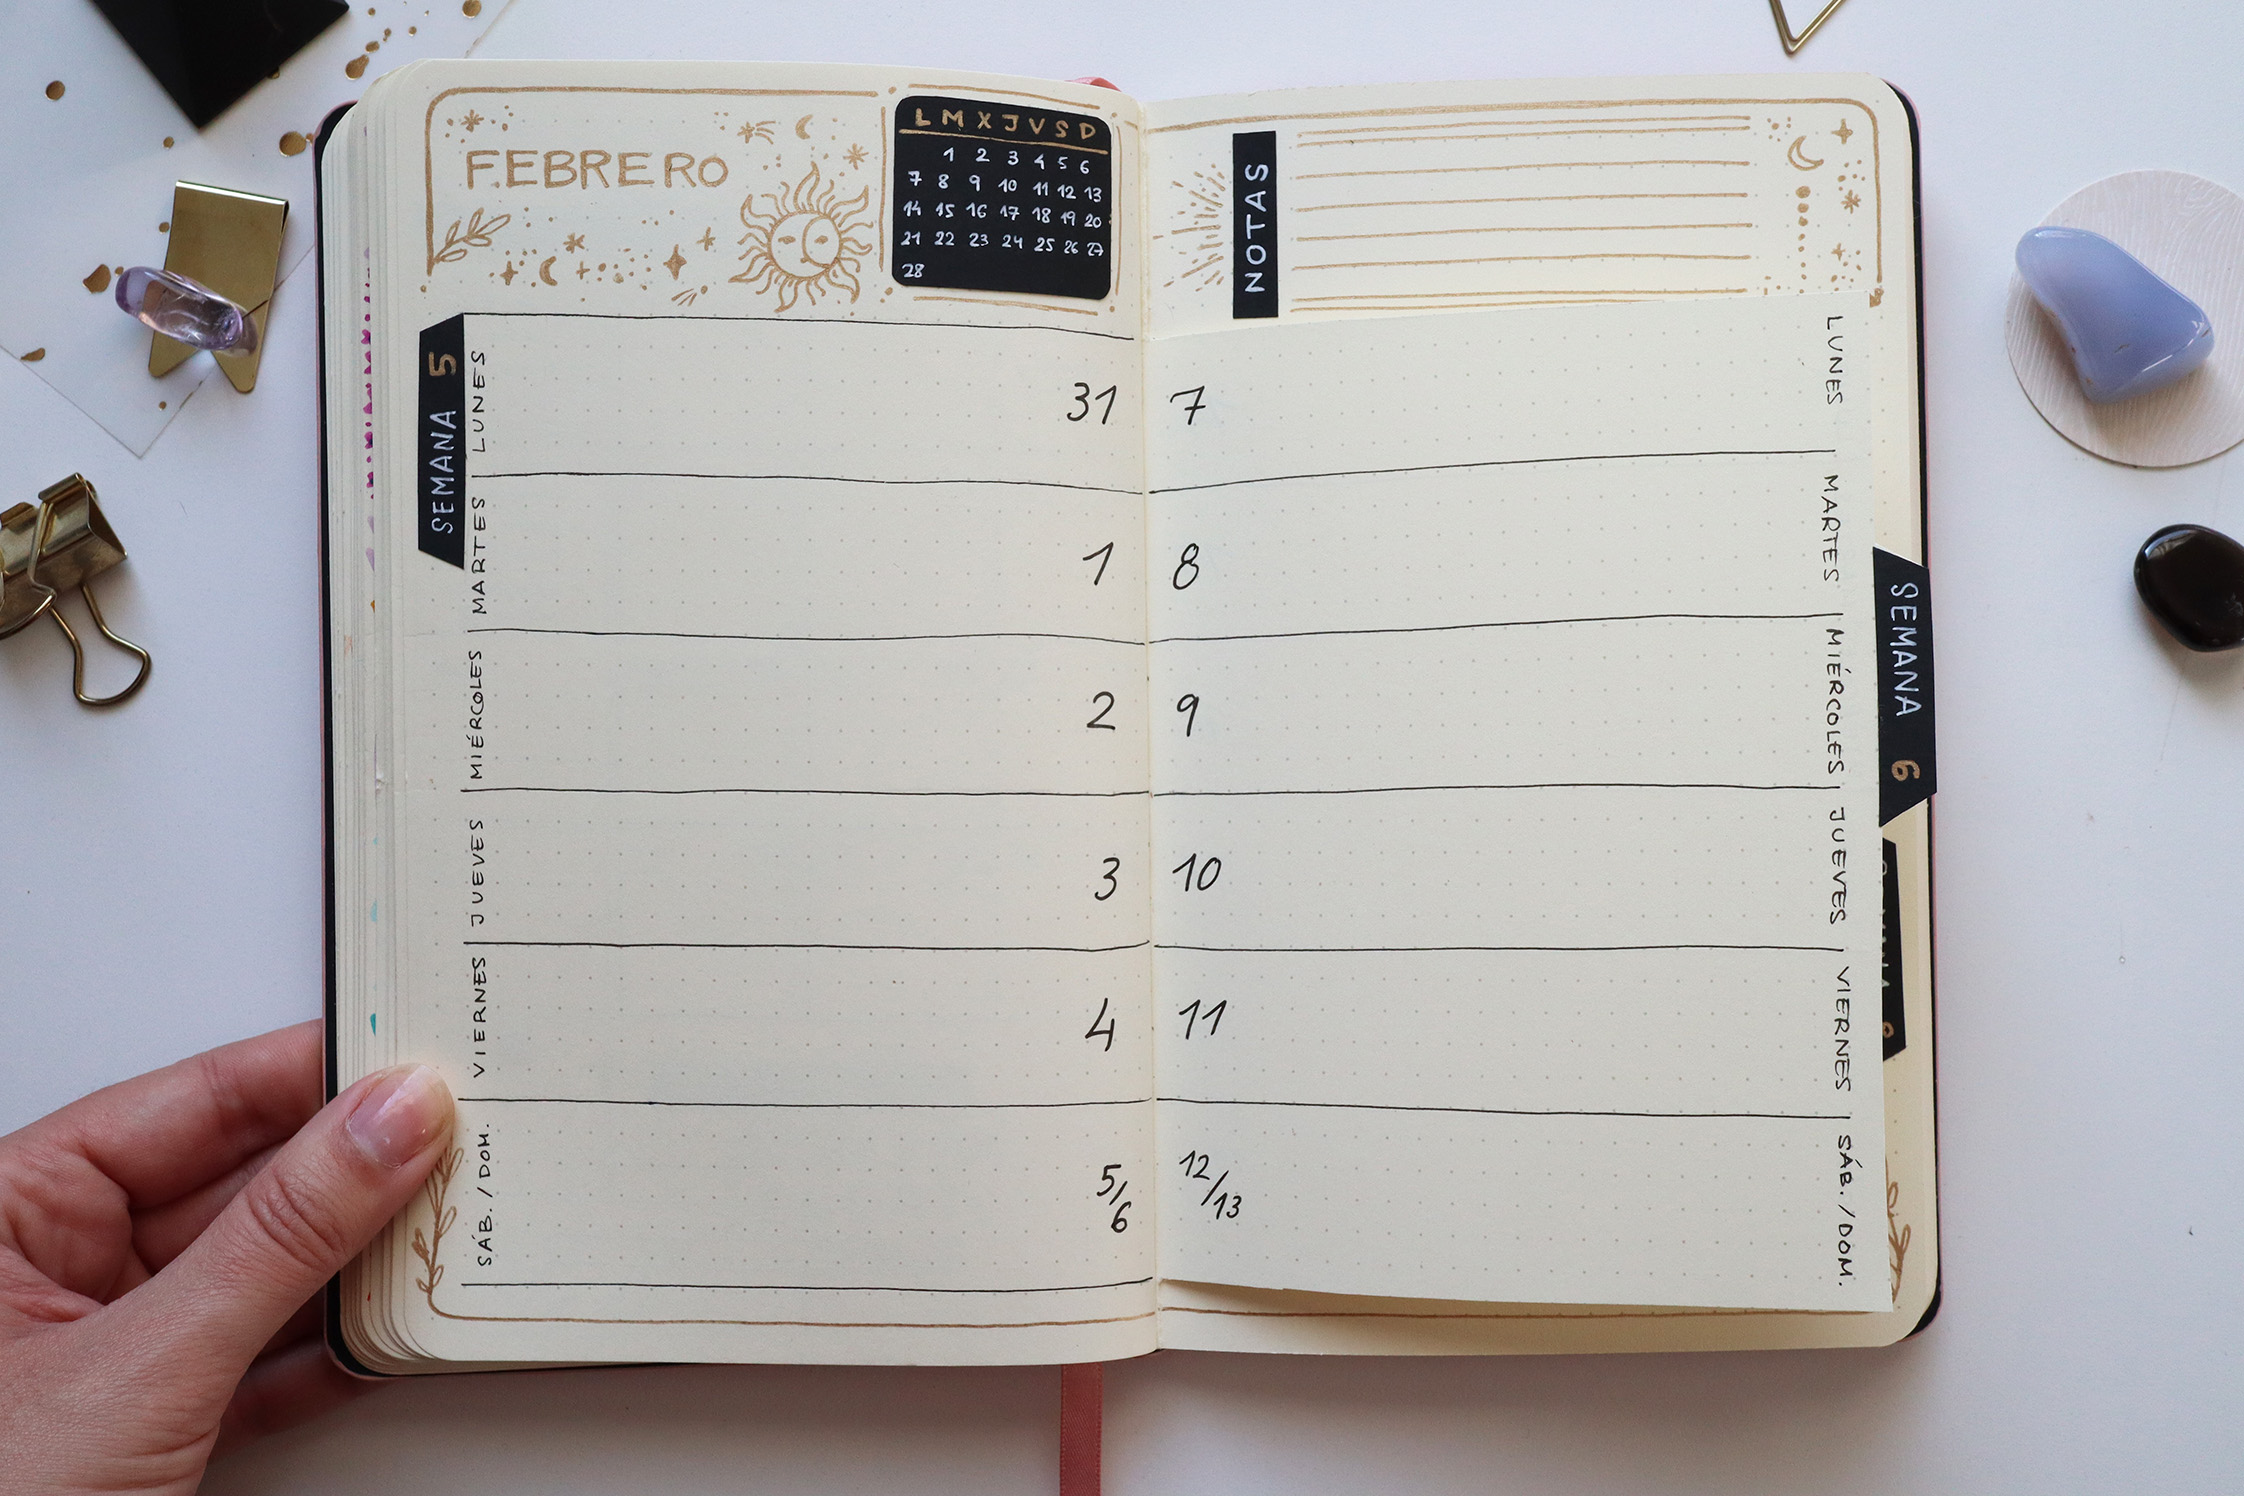 FEBRERO
L M X J V S D
1 2 3 4 5 6
7 8 9 10 11 12 13
14 15 16 17 18 19 20
21 22 23 24 25 26 27
28
SEMANA 5
LUNES
31
MARTES
1
MIÉRCOLES
2
JUEVES
3
VIERNES
4
SÁB. / DOM.
5/6
NOTAS
7
LUNES
8
MARTES
9
MIÉRCOLES
10
JUEVES
11
VIERNES
12/13
SÁB. / DOM.
SEMANA 6